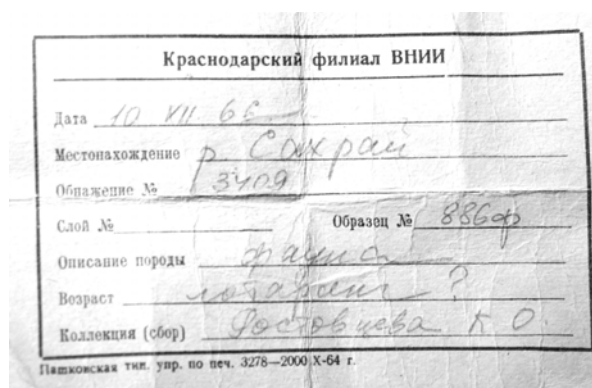 Краснодарский филиал ВНИИ
Дата 10 VII 66
Местонахождение р. Сахрай
Обнажение № 3409
Слой № Образец № 886ф
Описание породы фауна
Возраст лотаринг ?
Коллекция (сбор) Ростовцева К О.
Пашковская тип. упр. по печ. 3278—2000 X-64 г.